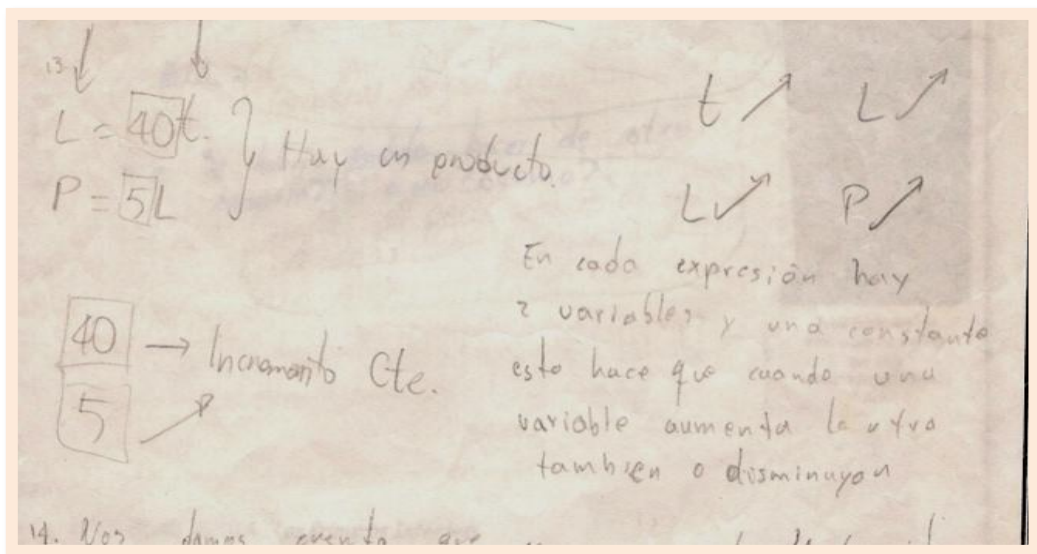 13.
L = 40t. } Hay un producto.
P = 5L
t ↗ L ↗
L ↗ P ↗
40 → Incremento Cte.
5
En cada expresión hay
2 variables y una constante
esto hace que cuando una
variable aumenta la otra
tambien o disminuyan
14. Nos damos cuenta que